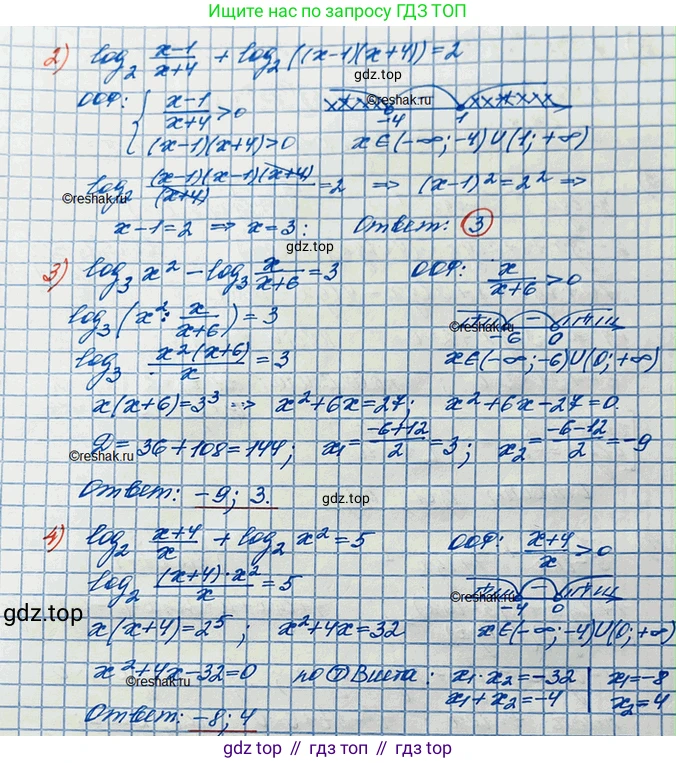 Ищите нас по запросу ГДЗ ТОП
2) log₂ (x-1)/(x+4) + log₂((x-1)(x+4)) = 2
ООФ: { (x-1)/(x+4) > 0
(x-1)(x+4) > 0
©reshak.ru
-4 1
x∈(-∞; -4)∪(1; +∞)
log₂ ((x-1)(x-1)(x+4))/(x+4) = 2 => (x-1)² = 2² =>
©reshak.ru
x-1=2 => x=3. Ответ: 3
gdz.top
3) log₃ x² - log₃ x/(x+6) = 3 ООФ: x/(x+6) > 0
log₃(x² : x/(x+6)) = 3
+ - +
©reshak.ru
-6 0
log₃ (x²(x+6))/x = 3 x∈(-∞; -6)∪(0; +∞)
x(x+6)=3³ => x²+6x=27; x²+6x-27=0.
D=36+108=144; x₁=(-6+12)/2=3; x₂=(-6-12)/2=-9
©reshak.ru
Ответ: -9; 3.
gdz.top
4) log₂ (x+4)/x + log₂ x² = 5 ООФ: (x+4)/x > 0
log₂ ((x+4)·x²)/x = 5
+ - +
©reshak.ru
-4 0
gdz.top
x(x+4)=2⁵; x²+4x=32 x∈(-∞; -4)∪(0; +∞)
x²+4x-32=0 по Т Виета: x₁·x₂=-32 | x₁=-8
x₁+x₂=-4 | x₂=4
©reshak.ru
Ответ: -8; 4
gdz.top // гдз.топ // gdz.top